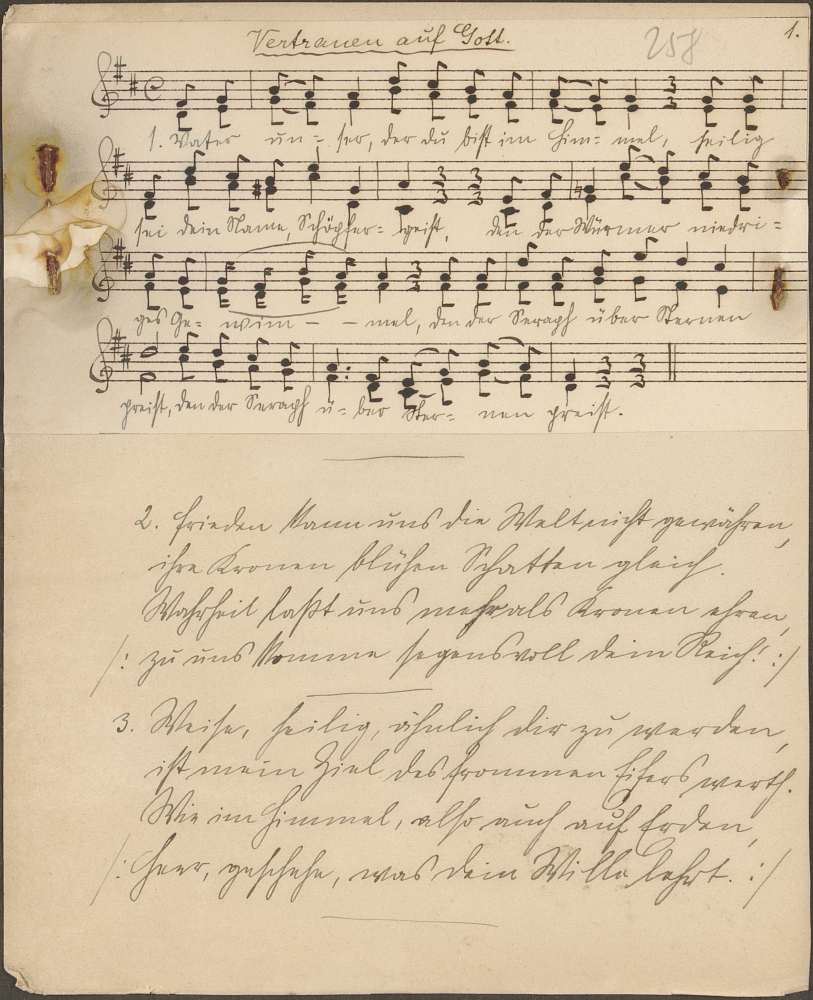 Vertrauen auf Gott.
258
1.
1. Vater un = ser, der du bist im Him = mel, heilig
sei dein Name, Schöpfer = geist, den der Würmer niedri =
ges Ge = wim - - mel, den der Seraph über Sternen
preist, den der Seraph ü = ber Ster = nen preist.
2. Frieden kann uns die Welt nicht gewähren,
ihre Kronen blühen Schatten gleich.
Wahrheit laßt uns mehr als Kronen ehren,
/: zu uns komme segensvoll dein Reich! :/
3. Weise, heilig, ähnlich dir zu werden,
ist mein Ziel des frommen Eifers werth.
Wie im Himmel, also auch auf Erden,
/: Herr, geschehe, was dein Wille lehrt. :/